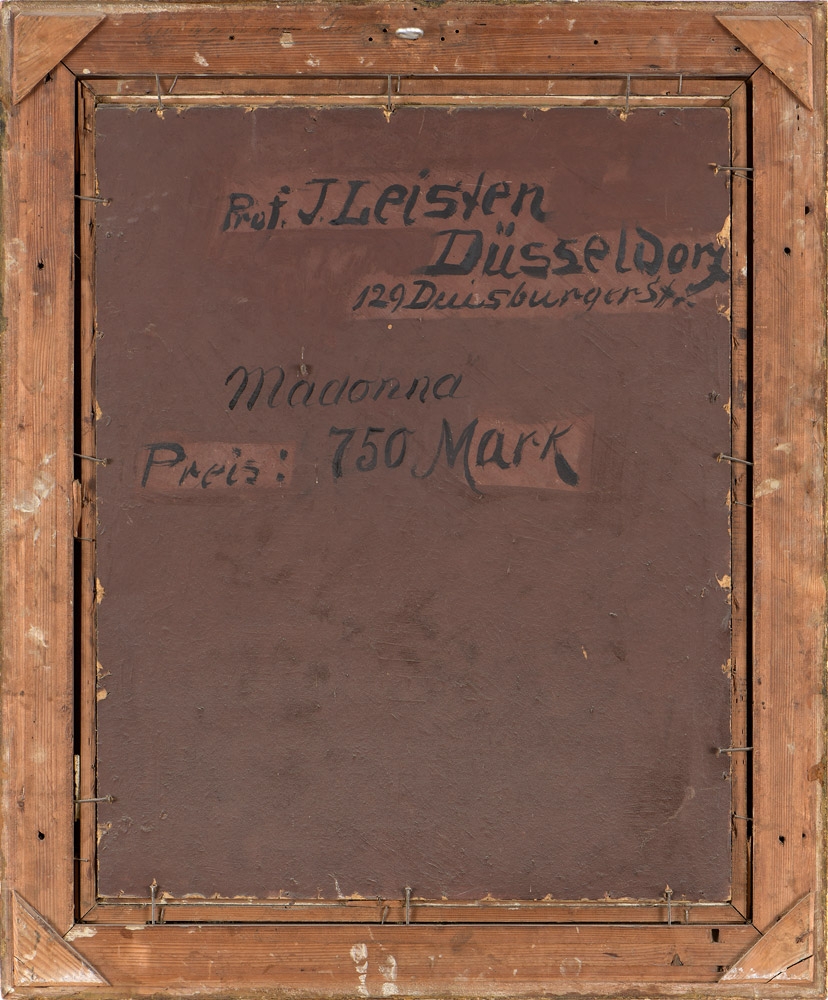 Prof. J. Leisten
Düsseldorf
129 Duisburger Str.
Madonna
Preis: 750 Mark